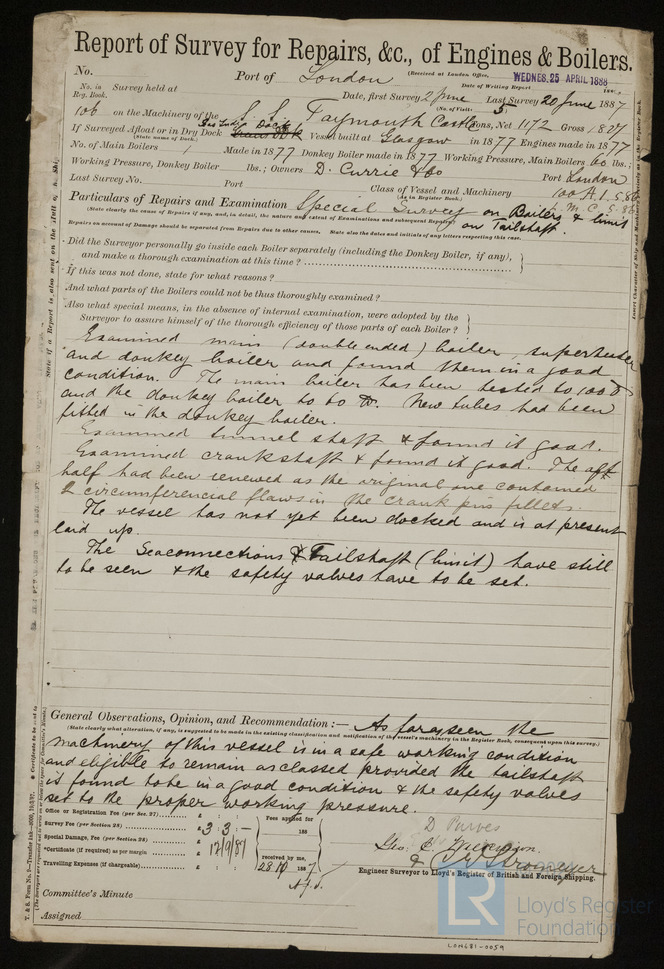 Report of Survey for Repairs, &c., of Engines & Boilers.
(Received at London Office, WEDNES. 25 APRIL 1888
No. Port of London
Date of Writing Report 188
No. in Reg. Book. Survey held at Date, first Survey 2 June Last Survey 20 June 1887
(No. of Visits 5)
106 on the Machinery of the S. S. Taymouth Castle Tons, Net 1172 Gross 1827
If Surveyed Afloat or in Dry Dock Dock Vessel built at Glasgow in 1877 Engines made in 1877
(State name of Dock.)
No. of Main Boilers 1 Made in 1877 Donkey Boiler made in 1877 Working Pressure, Main Boilers 60 lbs.;
Working Pressure, Donkey Boiler lbs.; Owners D. Currie & Co Port London
Last Survey No. Port Class of Vessel and Machinery 100 A.1. 5.86
(As in Register Book.) L.M.C. 5.86
Particulars of Repairs and Examination Special Survey on Boilers & limit
on Tailshaft.
(State clearly the cause of Repairs if any, and, in detail, the nature and extent of Examinations and subsequent Repairs.)
Repairs on account of Damage should be separated from Repairs due to other causes. State also the dates and initials of any letters respecting this case.
Did the Surveyor personally go inside each Boiler separately (including the Donkey Boiler, if any),
and make a thorough examination at this time?
If this was not done, state for what reasons?
And what parts of the Boilers could not be thus thoroughly examined?
Also what special means, in the absence of internal examination, were adopted by the
Surveyor to assure himself of the thorough efficiency of those parts of each Boiler?
Examined main (double ended) boiler, superheater
and donkey boiler and found them in a good
condition. The main boiler has been tested to 100 lb
and the donkey boiler to 60 lb. New tubes had been
fitted in the donkey boiler.
Examined tunnel shaft & found it good.
Examined crankshaft & found it good. The aft
half had been renewed as the original one contained
2 circumferencial flaws in the crank pin fillets.
The vessel has not yet been docked and is at present
laid up.
The Seaconnections & Tailshaft (limit) have still
to be seen & the safety valves have to be set.
General Observations, Opinion, and Recommendation:— As far as seen the
(State clearly what alteration, if any, is suggested to be made in the existing classification and notification of the vessel's machinery in the Register Book, consequent upon this survey.)
machinery of this vessel is in a safe working condition
and eligible to remain as classed provided the tailshaft
is found to be in a good condition & the safety valves
set to the proper working pressure.
Office or Registration Fee (per Sec. 27) £ : : Fees applied for
Survey Fee (per Section 28) £ 3 : 3 : — 188
Special Damage, Fee (per Section 28) £ : :
*Certificate (if required) as per margin £ 12/9/87 received by me,
Travelling Expenses (if chargeable) £ : : 28 10 1887
D Purves
Geo. C.
& Stromeyer
Engineer Surveyor to Lloyd's Register of British and Foreign Shipping.
Committee's Minute
Assigned
LR Lloyd's Register
Foundation
LON681-0059